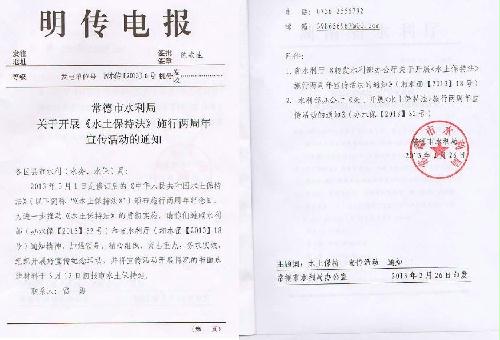 明传电报
发往
地址
签批
盖章
等级
发电单位号
常德市水利局
关于开展《水土保持法》施行两周年
宣传活动的通知
各区县市水利（水务、水保）局：
2013年3月1日是修订后的《中华人民共和国水土保持
法》（以下简称《水土保持法》）颁布施行两周年纪念日，
为进一步推动《水土保持法》的贯彻实施，请你们按照水利
部（办水保【2013】32号）和省水利厅（湘水函【2013】18
号）通知精神，加强领导，精心组织，突出重点，务求实效，
组织开展好宣传纪念活动，并将宣传活动开展情况的书面总
结材料于3月
联系人：
（共 页）
邮箱：
附件：
1、省水利厅《转发水利部办公厅关于开展《水土保持法》
施行两周年宣传活动的通知》（湘水函【2013】18号）
2、水利部办公厅《关于开展《水土保持法》施行两周年宣
传活动的通知》（办水保【2013】32号）
常德市水利局
2013年2月26日
主题词：水土保持 宣传活动 通知
常德市水利局办公室 2013年2月26日印发